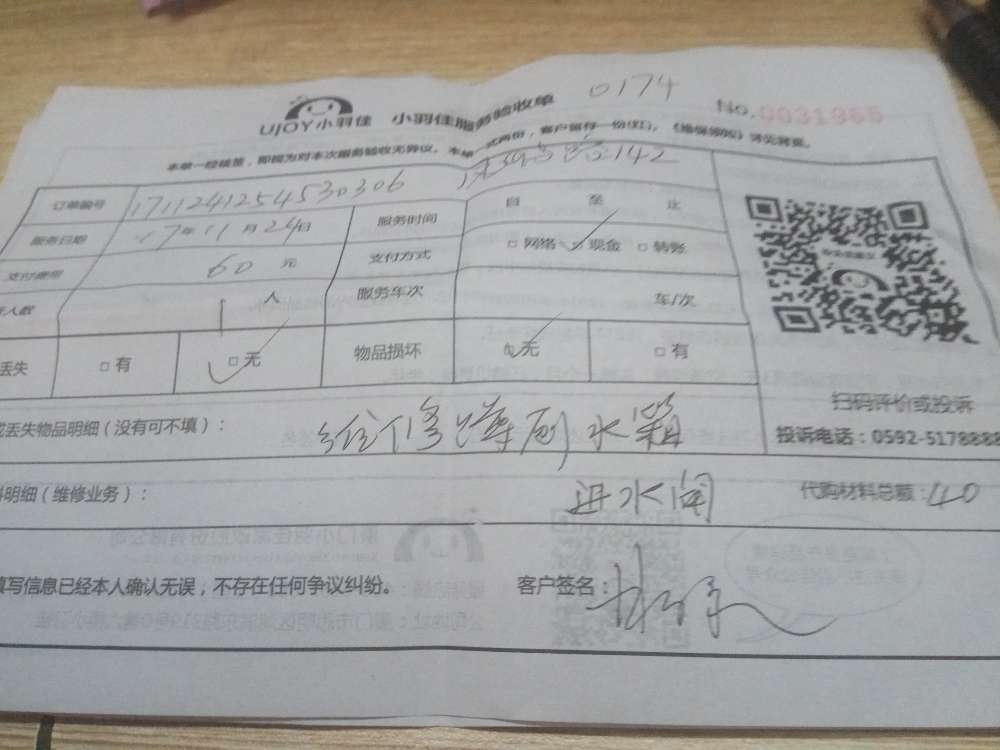 UJOY小羽佳 小羽佳服务验收单 0174 No.0031955
本单一经接签，即视为对本次服务验收无异议。本单一式两份，客户留存一份(红)。
订单编号 1711241254530306 142
服务日期 17年11月24日 服务时间 自 至 止
支付费用 60元 支付方式 □网络 ☑现金 □转账
人数 1人 服务车次 车/次
丢失 □有 ☑无 物品损坏 ☑无 □有
扫码评价或投诉
丢失物品明细（没有可不填）： 维修 水箱 投诉电话：0592-5178888
明细（维修业务）： 进水阀 代购材料总额：40
填写信息已经本人确认无误；不存在任何争议纠纷。 客户签名：